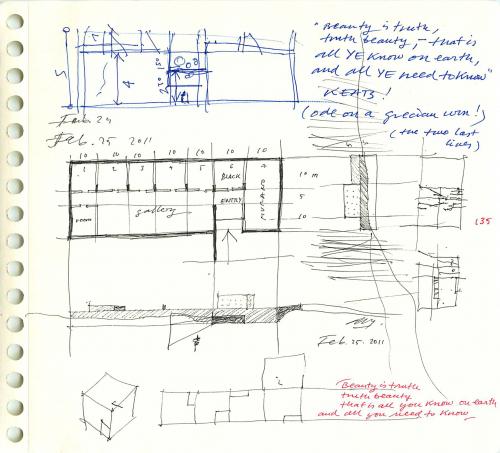 "Beauty is truth,
truth beauty, - that is
all YE know on earth,
and all YE need to know"
KEATS!
(ode on a grecian urn!)
(the two last
lines)
5
4
Feb. 24
Feb. 25 2011
10 10 10 10 10 10 10
1 2 3 4 5 6 7
BLACK
10 m
ENTRY
5
room
gallery
MURANO
10
135
Feb. 25. 2011
Beauty is truth
truth beauty
that is all you know on earth
and all you need to know